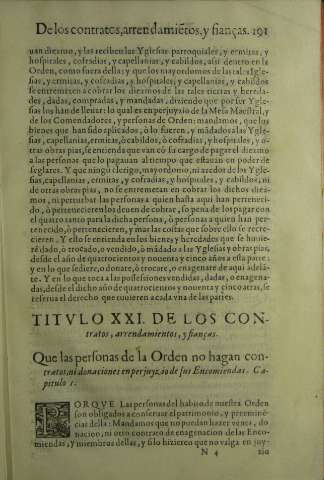 De los contratos, arrendamiētos, y fianças. 191
uan diezmo, y las reciben las Yglesias parroquiales, y ermitas, y
hospitales, cofradias, y capellanias, y cabildos, assi dentro en la
Orden, como fuera della: y que los mayordomos de las tales Ygle-
sias, y ermitas, y cofradias, y hospitales, y capellanias, y cabildos
se entremeten a cobrar los diezmos de las tales tierras y hereda-
des, dadas, compradas, y mandadas, diziendo que por ser Ygle-
sias los han de lleuar: lo qual es en perjuyzio de la Mesa Maestral, y
de los Comendadores, y personas de Orden: mandamos, que los
bienes que han sido aplicados, ò lo fueren, y mādados a las Ygle-
sias, capellanias, ermitas, ò cabildos, ò cofradias, y hospitales, y o-
tras obras pias, se entienda que van cō su cargo de pagar el diezmo
a las personas que lo pagauan al tiempo que estauan en poder de
seglares. Y que ningū clerigo, mayordomo, ni arrēdor de las Ygle-
sias, capellanias, ermitas, y cofradias, y hospitales, y cabildos, ni
de otras obras pias, no se entremetan en cobrar los dichos diez-
mos, ni perturbar las personas a quien hasta aqui han perteneci-
do, ò pertenecieren los deuen de cobrar, so pena de los pagar con
el quatro tanto para la dicha persona, ò personas a quien han per-
tenecido, ò pertenecieren, y mas las costas que sobre ello se recre-
cieren. Y ello se entienda en los bienes y heredades que se huuie-
rē dado, ò trocado, o vendido, ò mādado a las Yglesias y obras pias,
desde el año de quatrocientos y nouenta y cinco años a esta parte:
y en lo que se diere, o donare, ò trocare, o enagenare de aqui adelā-
te. Y en lo que toca a las possessiones vendidas, dadas, o enagena-
das, desde el dicho año de quatrocientos y nouenta y cinco atras, se
reserua el derecho que tuuieren a cada vna de las partes.
TITVLO XXI. DE LOS CON-
tratos, arrendamientos, y fianças.
Que las personas de la Orden no hagan con-
tratos, ni donaciones en perjuyzio de sus Encomiendas. Ca-
pitulo 1.
PORQVE Las personas del habito de nuestra Orden
son obligados a conseruar el patrimonio, y preeminē-
cias della: Mandamos que no puedan hazer venta, do
nacion, ni otro contrato de enagenacion de las Enco-
miendas, y miembros dellas, y si lo hizieren que no valga en juy-
N 4 zio